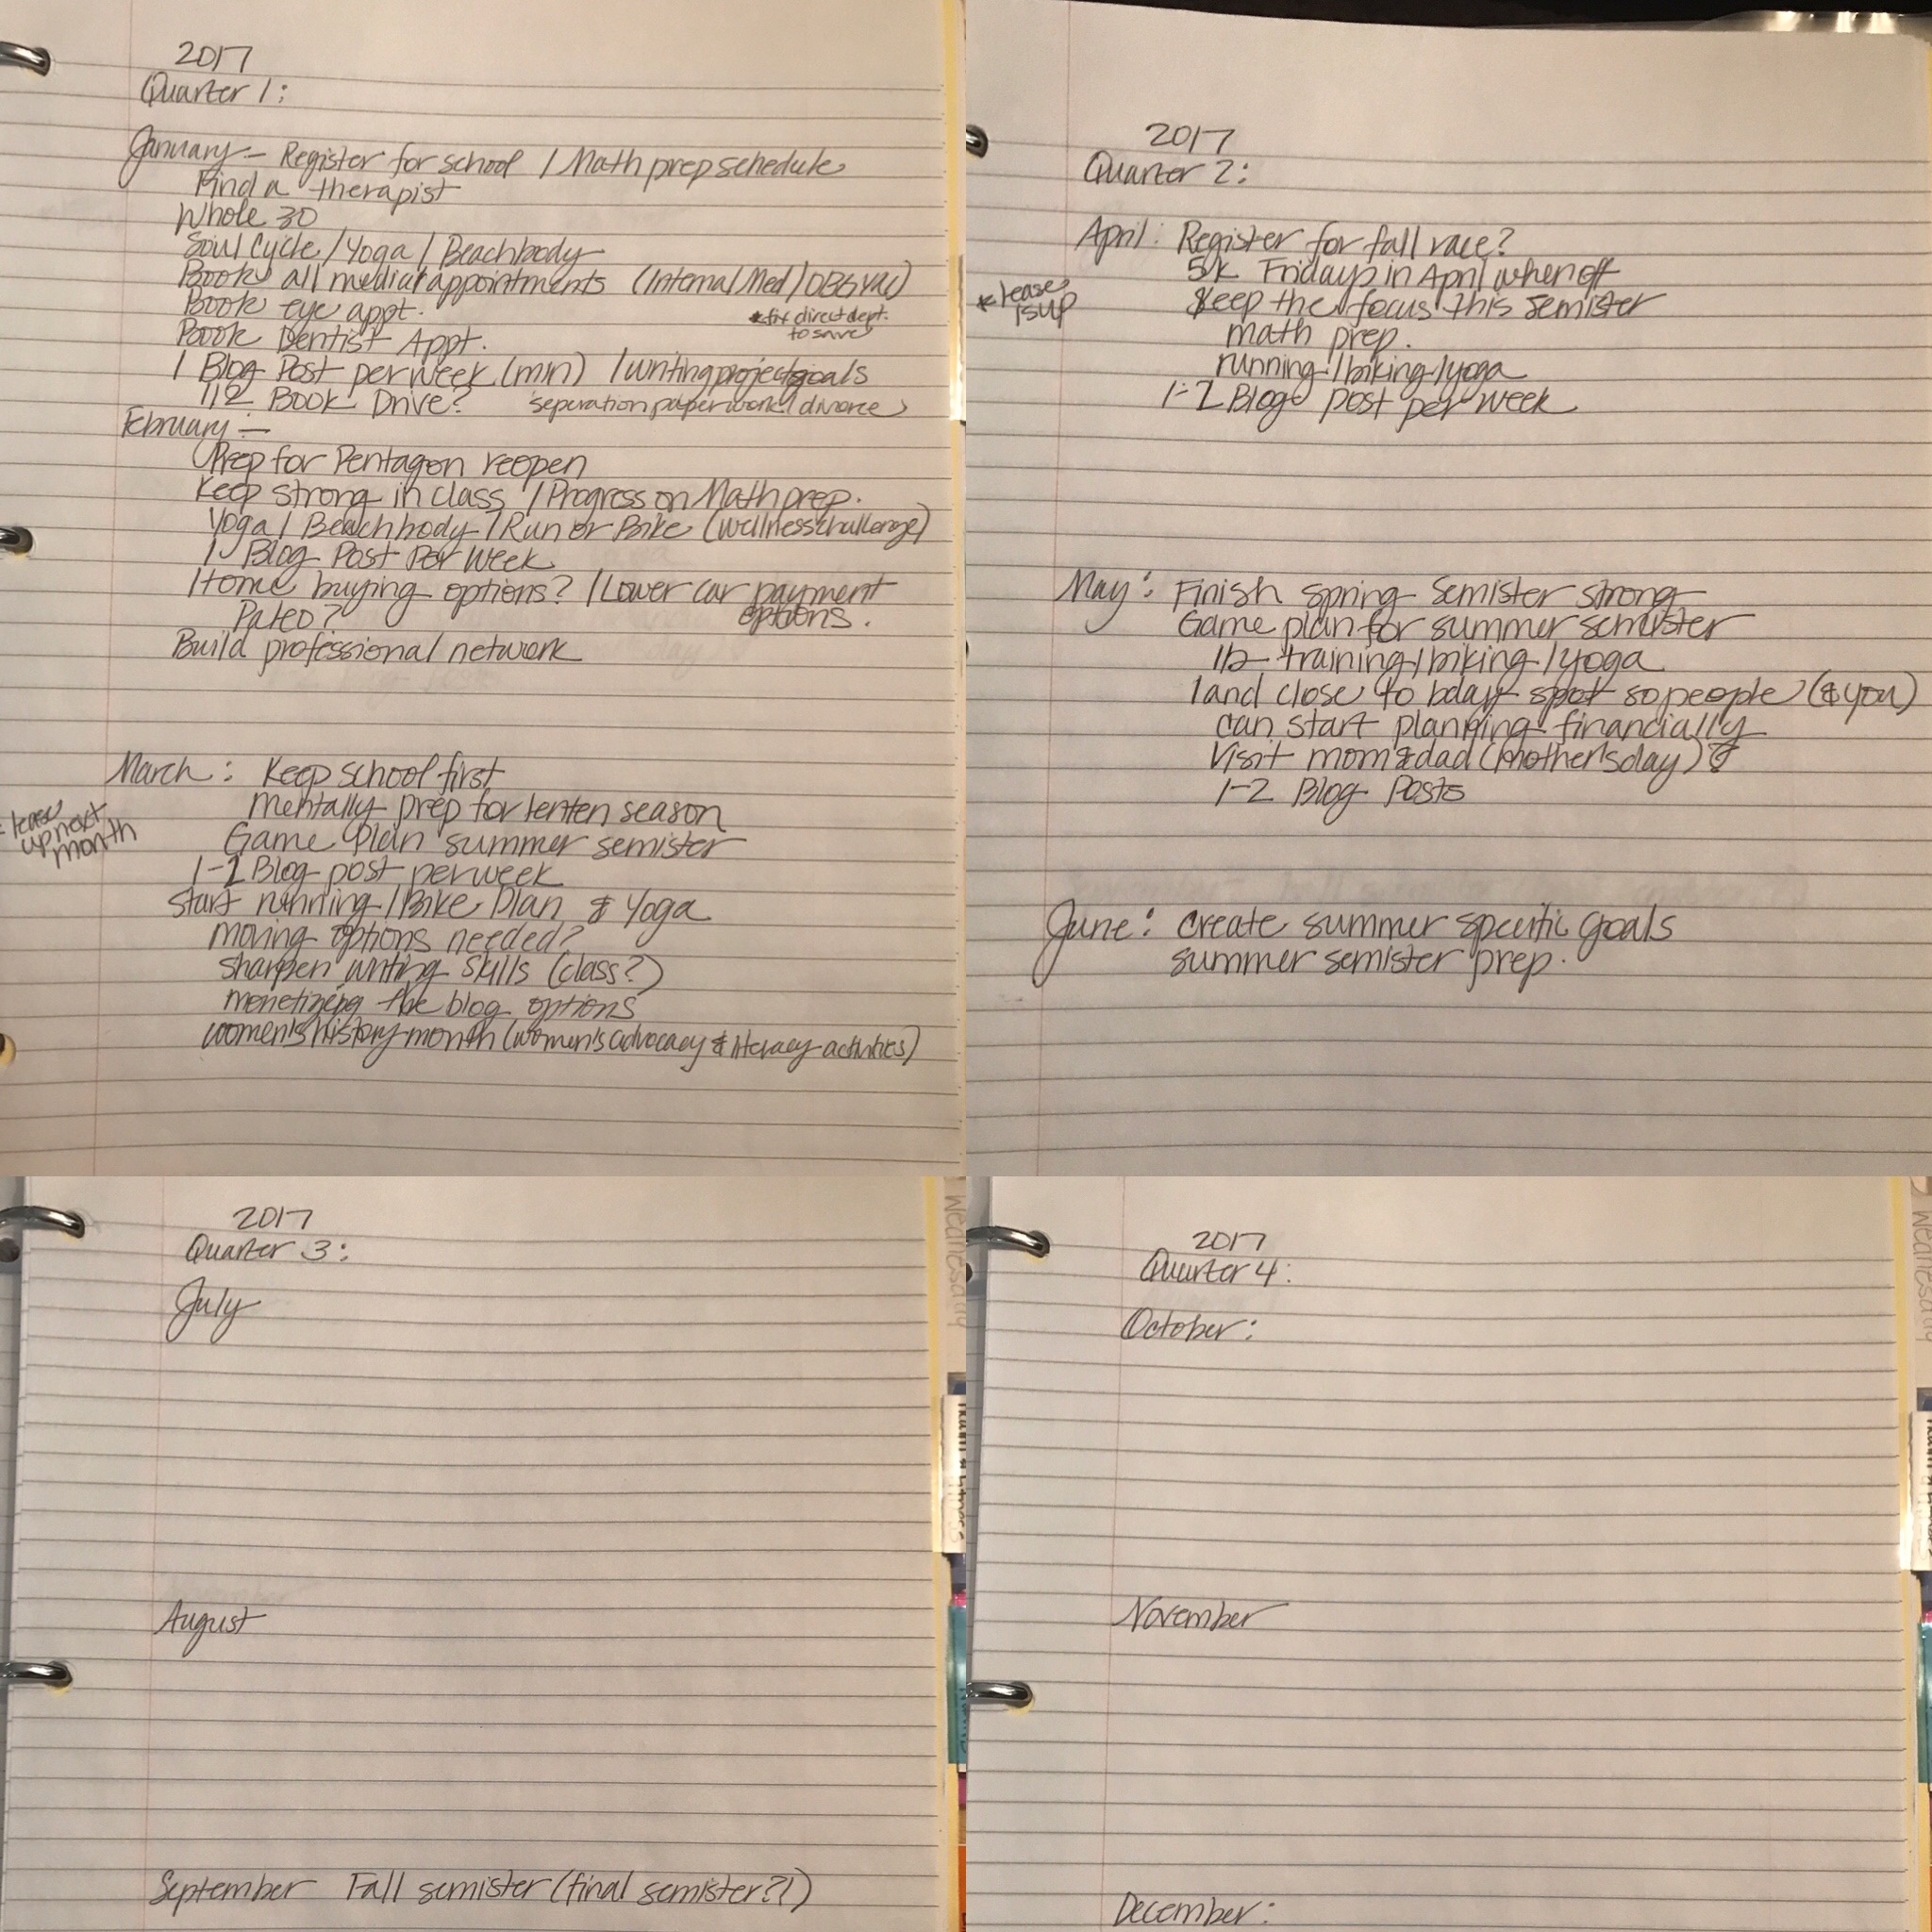 2017
Quarter 1:
January – Register for school / Math prep schedule
Find a therapist
Whole 30
Soul Cycle / Yoga / Beachbody
Book all medical appointments (Internal Med / OBGYN)
Book eye appt.
* fix direct dept.
to save
Book Dentist Appt.
1 Blog Post per week (min) / writing project goals
1/2 Book Drive? seperation paperwork / divorce
February –
Prep for Pentagon reopen
Keep strong in class / Progress on Math prep.
Yoga / Beachbody / Run or Bike (wellness challenge)
1 Blog Post Per Week
Home buying options? / Lower car payment
options.
Paleo?
Build professional network
March: Keep school first
mentally prep for lenten season
* lease
up next
month
Game plan summer semister
1-2 Blog post per week
start running / Bike Plan & Yoga
moving options needed?
sharpen writing skills (class?)
monetizing the blog options
women's history month (women's advocacy & literacy activities)
2017
Quarter 2:
April: Register for fall race?
5k Fridays in April when off
* lease
is up
keep the focus this semister
math prep.
running / biking / yoga
1-2 Blog post per week
May: Finish spring semister strong
Game plan for summer semister
1/2 training / biking / yoga
land close to bday spot so people (& you)
can start planning financially
Visit mom & dad (mother's day)
1-2 Blog Posts
June: create summer specific goals
summer semister prep.
2017
Quarter 3:
July
August
September Fall semister (final semister?!)
Wednesday
2017
Quarter 4:
October:
November
December:
Wednesday